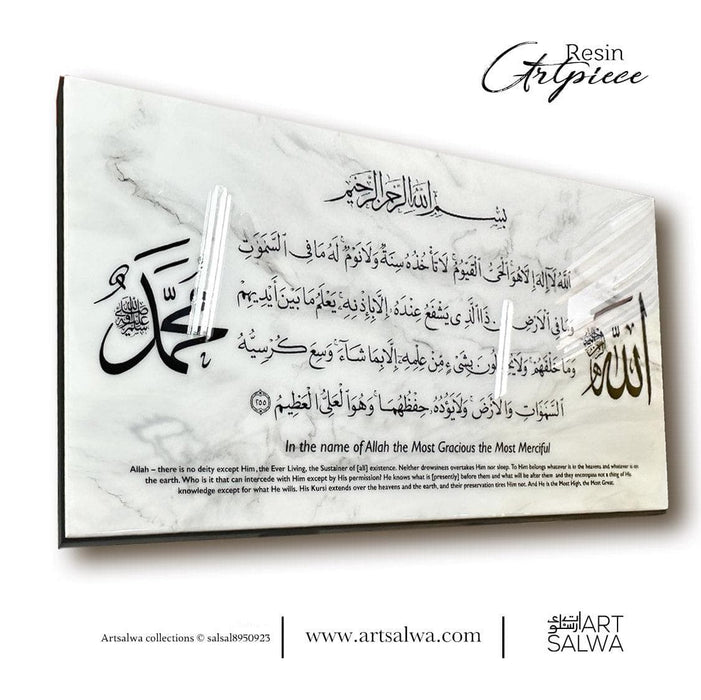 Resin
Artpiece
بِسْمِ اللَّهِ الرَّحْمَٰنِ الرَّحِيمِ
اللَّهُ لَا إِلَٰهَ إِلَّا هُوَ الْحَيُّ الْقَيُّومُ لَا تَأْخُذُهُ سِنَةٌ وَلَا نَوْمٌ لَهُ مَا فِي السَّمَٰوَٰتِ
وَمَا فِي الْأَرْضِ ذَا الَّذِي يَشْفَعُ عِندَهُ إِلَّا بِإِذْنِهِ يَعْلَمُ مَا بَيْنَ أَيْدِيهِمْ
وَمَا خَلْفَهُمْ وَلَا بِشَيْءٍ مِّنْ عِلْمِهِ إِلَّا بِمَا شَاءَ وَسِعَ كُرْسِيُّهُ
السَّمَٰوَٰتِ وَالْأَرْضَ وَلَا يَئُودُهُ حِفْظُهُمَا وَهُوَ الْعَلِيُّ الْعَظِيمُ ٢٥٥
اللَّه
مُحَمَّد
In the name of Allah the Most Gracious the Most Merciful
Allah – there is no deity except Him, the Ever Living, the Sustainer of [all] existence. Neither drowsiness overtakes Him nor sleep. To Him belongs whatever is in the heavens and whatever is on
the earth. Who is it that can intercede with Him except by His permission? He knows what is [presently] before them and what will be after them and they encompass not a thing of His
knowledge except for what He wills. His Kursi extends over the heavens and the earth, and their preservation tires Him not. And He is the Most High, the Most Great.
Artsalwa collections © salsal8950923
www.artsalwa.com
ART
SALWA